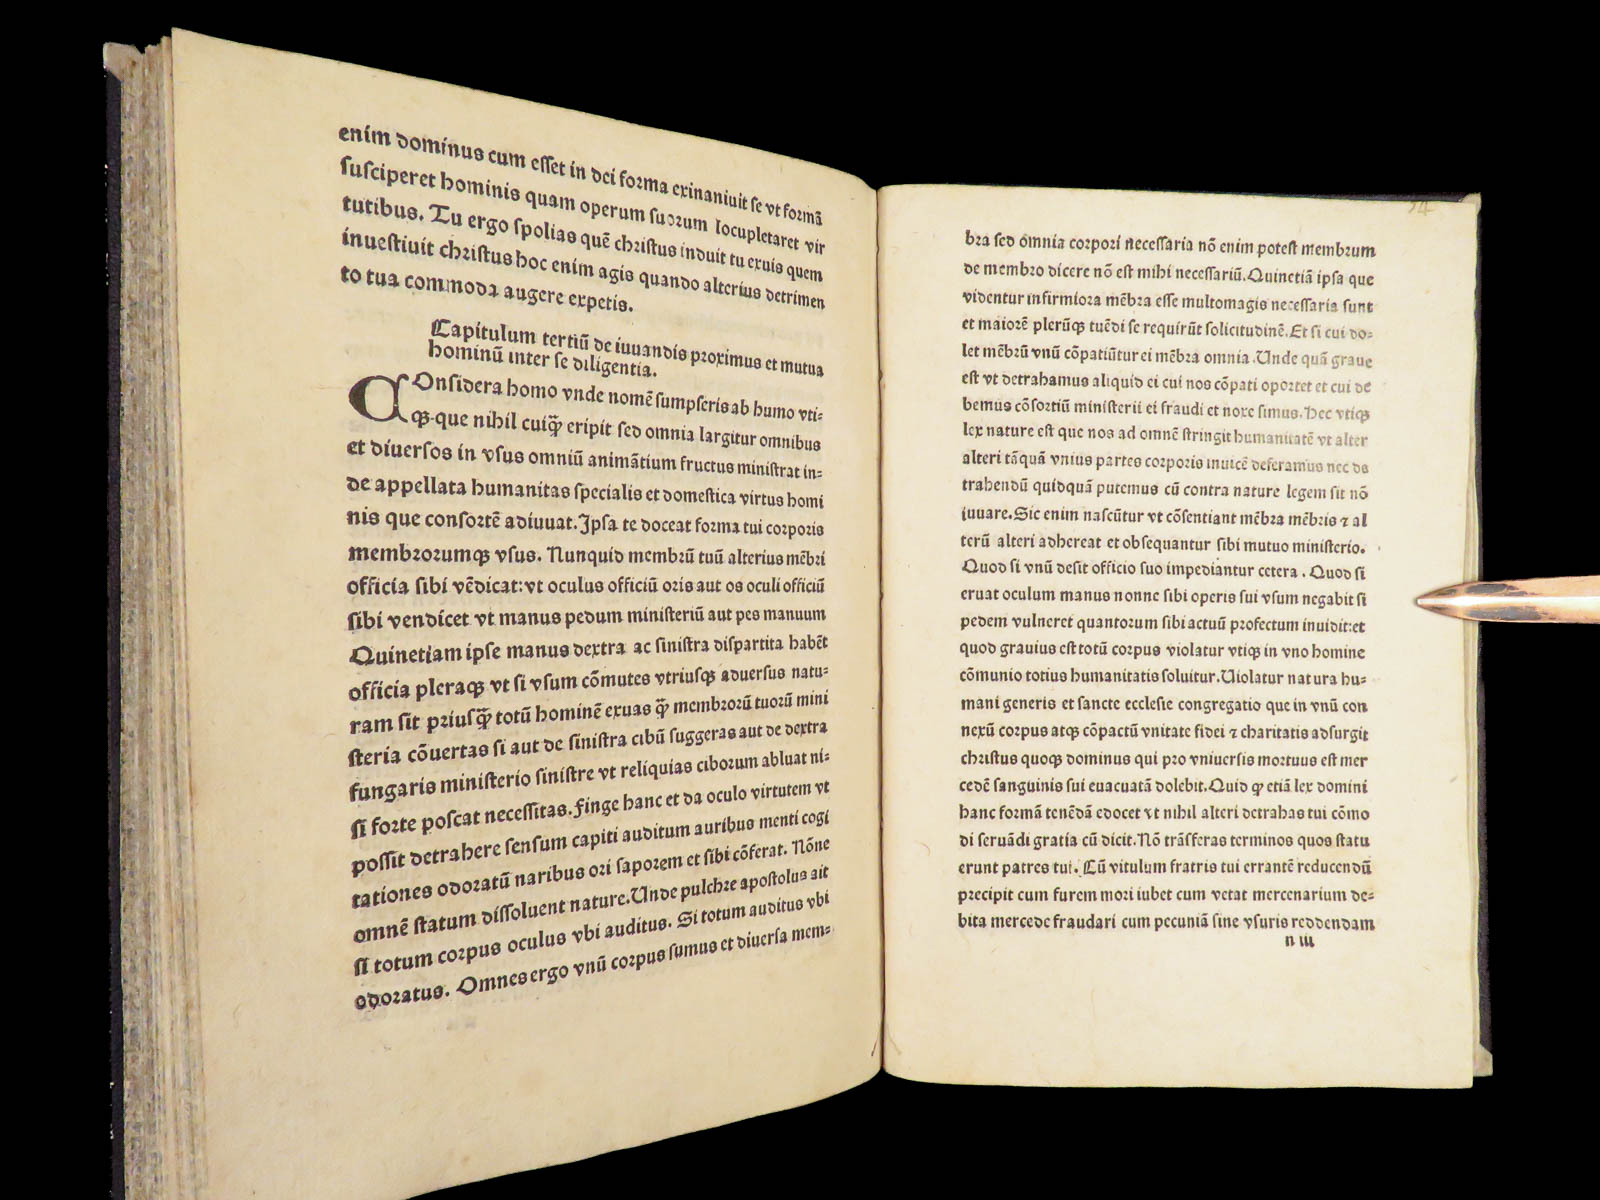 enim dominus cum esset in dei forma exinaniuit se vt formā
susciperet hominis quam operum suorum locupletaret vir
tutibus. Tu ergo spolias quē christus induit tu exuis quem
inuestiuit christus hoc enim agis quando alterius detrimen
to tua commoda augere expetis.
Capitulum tertiū de iuuandis proximus et mutua
hominū inter se diligentia.
COnsidera homo vnde nomē sumpseris ab humo vti-
qꝫ que nihil cuiqꝫ̄ eripit sed omnia largitur omnibus
et diuersos in vsus omniū animātium fructus ministrat in-
de appellata humanitas specialis et domestica virtus homi
nis que consortē adiuuat. Ipsa te doceat forma tui corporis
membrorumqꝫ vsus. Nunquid membrū tuū alterius mēbri
officia sibi vēdicat: vt oculus officiū oris aut os oculi officiū
sibi vendicet vt manus pedum ministeriū aut pes manuum
Quinetiam ipse manus dextra ac sinistra dispartita habēt
officia pleraqꝫ vt si vsum cōmutes vtriusqꝫ aduersus natu-
ram sit priusqꝫ̄ totū hominē exuas qꝫ̄ membrorū tuorū mini
steria cōuertas si aut de sinistra cibū suggeras aut de dextra
fungaris ministerio sinistre vt reliquias ciborum abluat ni-
si forte poscat necessitas. Finge hanc et da oculo virtutem vt
possit detrahere sensum capiti auditum auribus menti cogi
tationes odoratū naribus ori saporem et sibi cōferat. Nōne
omnē statum dissoluent nature. Unde pulchre apostolus ait
si totum corpus oculus vbi auditus. Si totum auditus vbi
odoratus. Omnes ergo vnū corpus sumus et diuersa mem-
54
bra sed omnia corpori necessaria nō enim potest membrum
de membro dicere nō est mihi necessariū. Quinetiā ipsa que
videntur infirmiora mēbra esse multomagis necessaria sunt
et maiorē plerūqꝫ tuēdi se requirūt solicitudinē. Et si cui do-
let mēbrū vnū cōpatiūtur ei mēbra omnia. Unde quā graue
est vt detrahamus aliquid ei cui nos cōpati oportet et cui de
bemus cōsortiū ministerii ei fraudi et noxe simus. Hec vtiqꝫ
lex nature est que nos ad omnē stringit humanitatē vt alter
alteri tāquā vnius partes corporis inuicē deferamus nec de
trahendū quidquā putemus cū contra nature legem sit nō
iuuare. Sic enim nascūtur vt cōsentiant mēbra mēbris ⁊ al
terū alteri adhereat et obsequantur sibi mutuo ministerio.
Quod si vnū desit officio suo impediantur cetera. Quod si
eruat oculum manus nonne sibi operis sui vsum negabit si
pedem vulneret quantorum sibi actuū profectum inuidit: et
quod grauius est totū corpus violatur vtiqꝫ in vno homine
cōmunio totius humanitatis soluitur. Uiolatur natura hu-
mani generis et sancte ecclesie congregatio que in vnū con
nexū corpus atqꝫ cōpactū vnitate fidei ⁊ charitatis adsurgit
christus quoqꝫ dominus qui pro vniuersis mortuus est mer
cedē sanguinis sui euacuatā dolebit. Quid qꝫ etiā lex domini
hanc formā tenēdā edocet vt nihil alteri detrahas tui cōmo
di seruādi gratia cū dicit. Nō trāsferas terminos quos statu
erunt patres tui. Cū vitulum fratris tui errantē reducendū
precipit cum furem mori iubet cum vetat mercenarium de-
bita mercede fraudari cum pecuniā sine vsuris reddendam
n iii